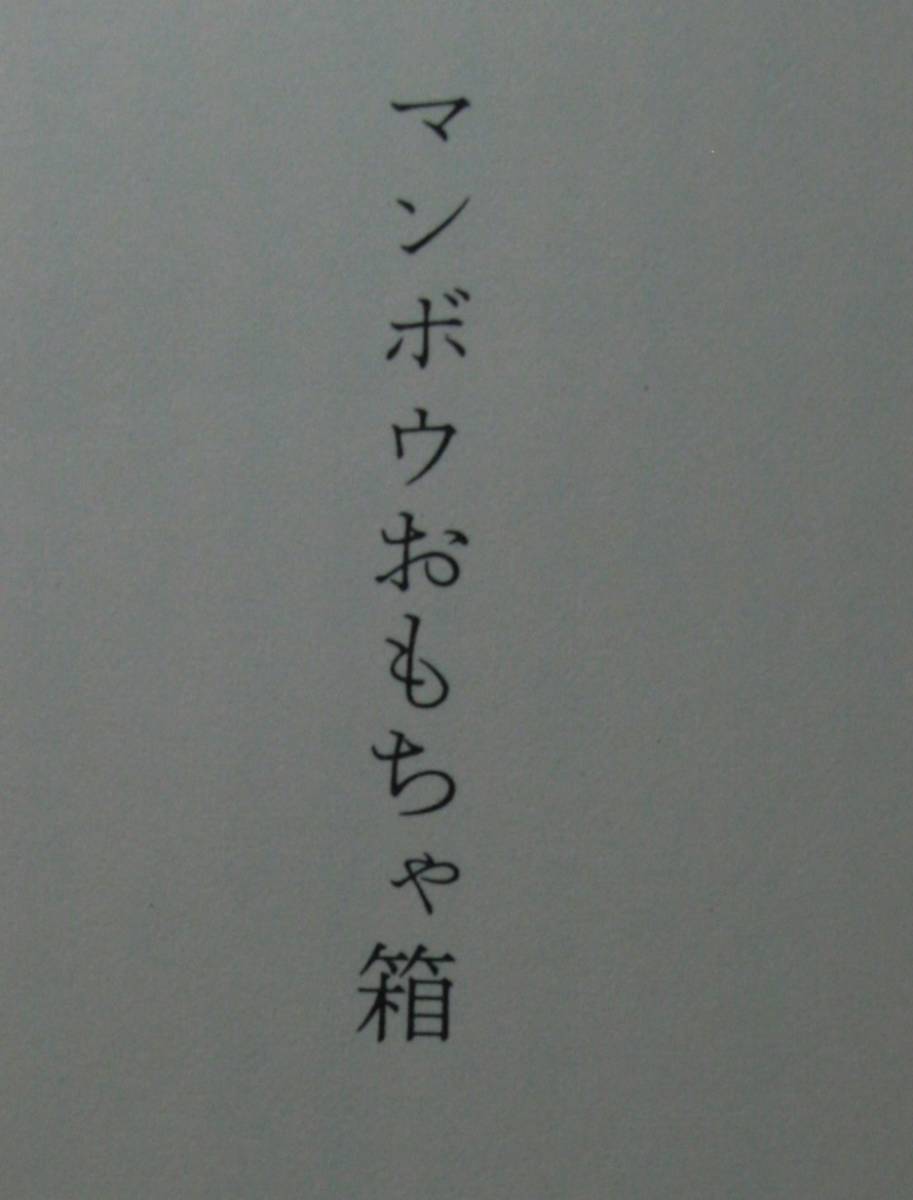 マンボウおもちゃ箱